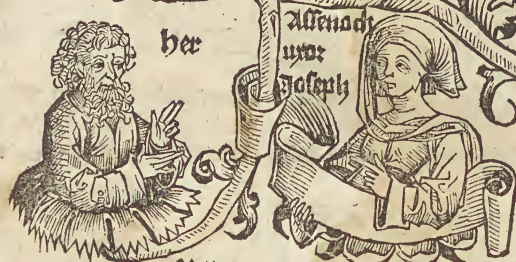 her
Assenach
uxor
Joseph